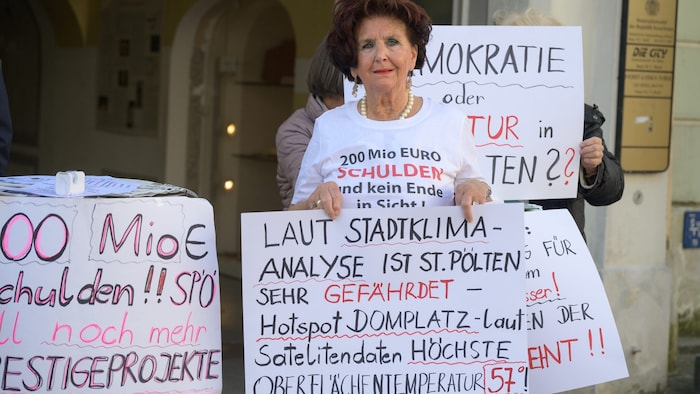 MOKRATIE
oder
TUR in
TEN ? ?
200 Mio EURO
SCHULDEN
und kein Ende
in Sicht !
LAUT STADTKLIMA-
ANALYSE IST ST. PÖLTEN
SEHR GEFÄHRDET –
Hotspot DOMPLATZ - laut
Satelitendaten HÖCHSTE
OBERFLÄCHENTEMPERATUR 57° !
00 Mio €
chulden !! SPÖ
ll noch mehr
RESTIGEPROJEKTE
G FÜR
sser !
EN DER
EINT !!
DIE CITY